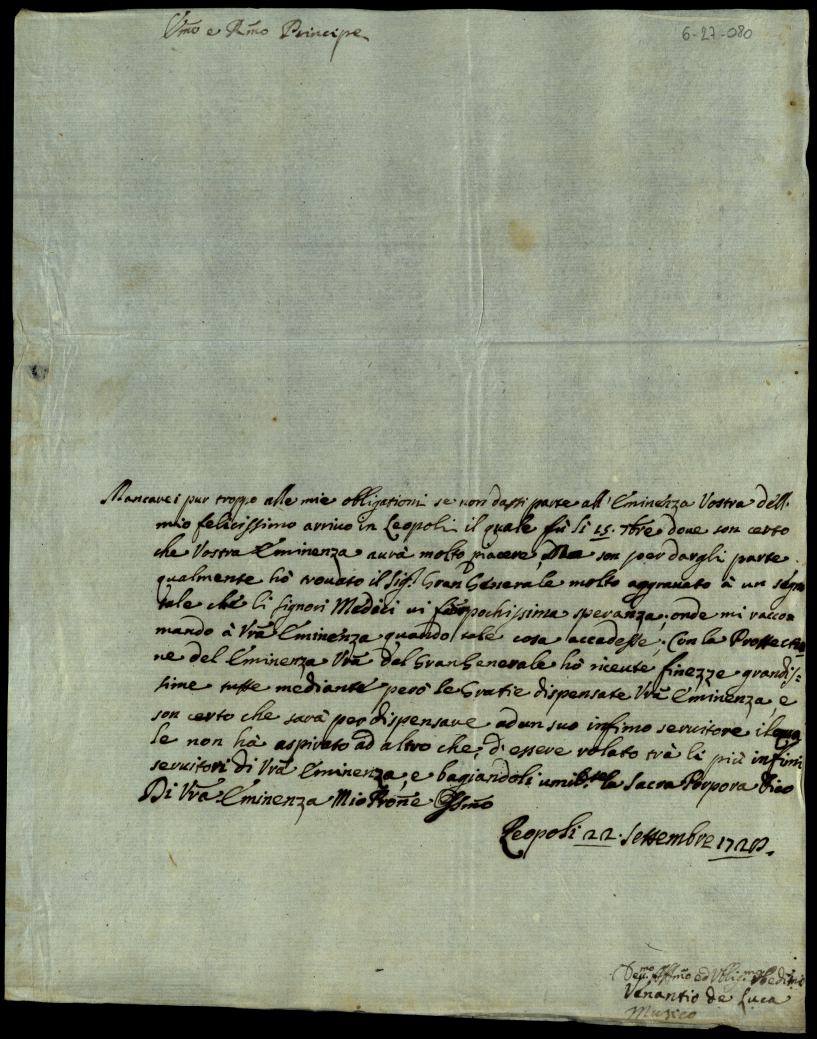 Emo e Rmo Principe
6-27-080
Mancarei pur troppo alle mie obbligationi se non dassi parte all'Eminenza Vostra dell
mio felicissimo arrivo in Leopoli il quale fù li 15. 7bre dove son certo
che Vostra Eminenza aurà molto piacere, Ma son per dargli parte
qualmente hò trovato il Sig.r Gran Generale molto aggravato à un segno
tale che li Signori Medici vi pochissima speranza; onde mi raccom
mando à Vrã Eminenza quando tale cosa accadesse; Con la Prottectio
ne del Eminenza Vrã dal Gran Generale hò riceute finezze grandis=
sime tutte mediante però le Gratie dispensate Vrã Eminenza, e
son certo che sarà per dispensare ad un suo infimo servitore il qua
le non hà aspirato ad altro che di essere volato trà li più infimi
servitori di Vrã Eminenza, e bagiandoli umil.te la Sacra Porpora Dico
Di Vrã Eminenza Mio Prone
Leopoli 22. Settembre 172
Venantio de Luca
Musico